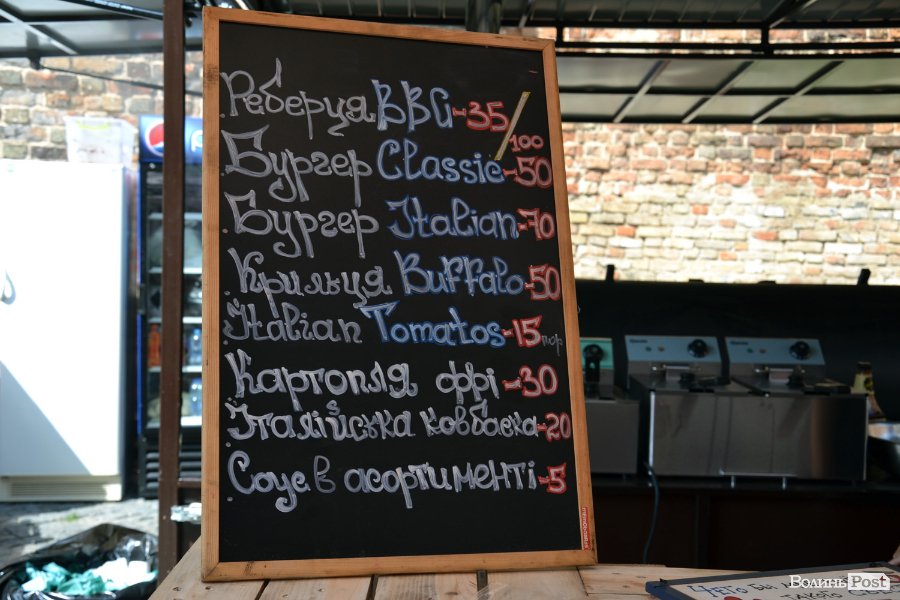 Реберця BBQ-35/100
Бургер Classic-50
Бургер Italian-70
Крильця Buffalo-50
Italian Tomatos-15
Картопля фрі-30
Італійська ковбаска-20
Соус в асортименті-5
ВолиньPost